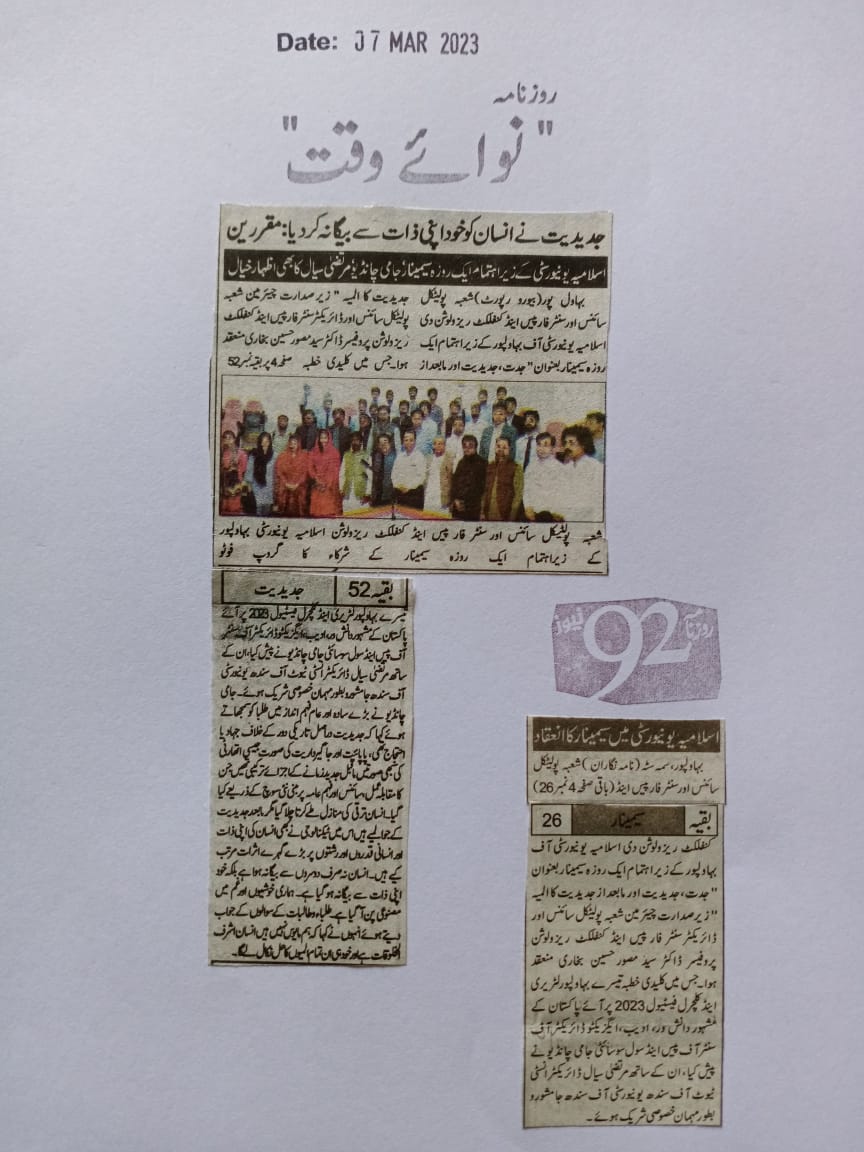 Date: 07 MAR 2023
روزنامہ
"نوائے وقت"
جدیدیت نے انسان کو خود اپنی ذات سے بیگانہ کر دیا: مقررین
اسلامیہ یونیورسٹی کے زیر اہتمام ایک روزہ سیمینار، جامی چانڈیو، مرتضیٰ سیال کا بھی اظہار خیال
بہاول پور (بیورو رپورٹ) شعبہ پولیٹیکل
سائنس اور سنٹر فار پیس اینڈ کنفلکٹ ریزولوشن دی
اسلامیہ یونیورسٹی آف بہاولپور کے زیر اہتمام ایک
روزہ سیمینار بعنوان "جدت، جدیدیت اور مابعد از
جدیدیت کا المیہ" زیر صدارت چیئرمین شعبہ
پولیٹیکل سائنس اور ڈائریکٹر سنٹر فار پیس اینڈ کنفلکٹ
ریزولوشن پروفیسر ڈاکٹر سید مصور حسین بخاری منعقد
ہوا۔ جس میں کلیدی خطبہ صفحہ 4 پر بقیہ نمبر 52
شعبہ پولیٹیکل سائنس اور سنٹر فار پیس اینڈ کنفلکٹ ریزولوشن اسلامیہ یونیورسٹی بہاولپور
کے زیر اہتمام ایک روزہ سیمینار کے شرکاء کا گروپ فوٹو
بقیہ 52 جدیدیت
تیسرے بہاولپور لٹریری اینڈ کلچرل فیسٹیول 2023 پر آئے
پاکستان کے مشہور دانش ور، ادیب، ایگزیکٹو ڈائریکٹر آف سنٹر
آف پیس اینڈ سول سوسائٹی جامی چانڈیو نے پیش کیا، ان کے
ساتھ مرتضیٰ سیال ڈائریکٹر انسٹی ٹیوٹ آف سندھ یونیورسٹی
آف سندھ جامشورو بطور مہمان خصوصی شریک ہوئے۔ جامی
چانڈیو نے بڑے سادہ اور عام فہم انداز میں طلبا کو سمجھاتے
ہوئے کہا کہ جدیدیت دراصل تاریکی دور کے خلاف جہاد یا
احتجاج تھی، پاپائیت اور جاگیرداریت کی صورت جیسی اتھارٹی
کی سبھی صورتیں ماقبل جدید زمانے کے اجزائے ترکیبی تھیں جن
کا مقابلہ عقل، سائنس اور فہم عامہ پر مبنی نئی سوچ کے ذریعے کیا
گیا۔ انسان ترقی کی منازل طے کرتا چلا گیا مگر مابعد جدیدیت
کے جو المیے ہیں اس میں ٹیکنالوجی نے بھی انسان کی اپنی ذات
اور انسانی قدروں اور رشتوں پر بڑے گہرے اثرات مرتب
کیے ہیں۔ انسان نہ صرف دوسروں سے بیگانہ ہوا ہے بلکہ خود
اپنی ذات سے بیگانہ ہو گیا ہے۔ ہماری خوشیوں اور غم میں
مصنوعی پن آ گیا ہے۔ طلباء و طالبات کے سوالوں کے جواب
دیتے ہوئے انہوں نے کہا کہ ہم مایوس نہیں ہیں، انسان اشرف
المخلوقات ہے اور خود ہی ان تمام المیوں کا حل نکال لے گا۔
روزنامہ 92 نیوز
اسلامیہ یونیورسٹی میں سیمینار کا انعقاد
بہاولپور، سمہ سٹہ (نامہ نگاران) شعبہ پولیٹیکل
سائنس اور سنٹر فار پیس اینڈ (باقی صفحہ 4 نمبر 26)
بقیہ سیمینار 26
کنفلکٹ ریزولوشن دی اسلامیہ یونیورسٹی آف
بہاولپور کے زیر اہتمام ایک روزہ سیمینار بعنوان
"جدت، جدیدیت اور مابعد از جدیدیت کا المیہ
" زیر صدارت چیئرمین شعبہ پولیٹیکل سائنس اور
ڈائریکٹر سنٹر فار پیس اینڈ کنفلکٹ ریزولوشن
پروفیسر ڈاکٹر سید مصور حسین بخاری منعقد
ہوا۔ جس میں کلیدی خطبہ تیسرے بہاولپور لٹریری
اینڈ کلچرل فیسٹیول 2023 پر آئے پاکستان کے
مشہور دانش ور، ادیب، ایگزیکٹو ڈائریکٹر آف
سنٹر آف پیس اینڈ سول سوسائٹی جامی چانڈیو نے
پیش کیا، ان کے ساتھ مرتضیٰ سیال ڈائریکٹر انسٹی
ٹیوٹ آف سندھ یونیورسٹی آف سندھ جامشورو
بطور مہمان خصوصی شریک ہوئے۔